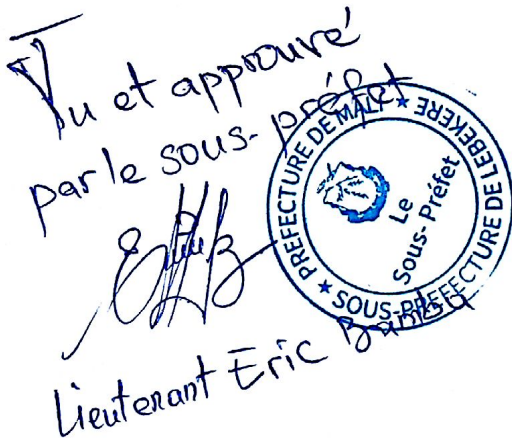 Vu et approuvé
par le sous-préfet
PREFECTURE DE MALI ★ SOUS-PREFECTURE DE LEBEKERE ★
Le
Sous-Préfet
Lieutenant Eric